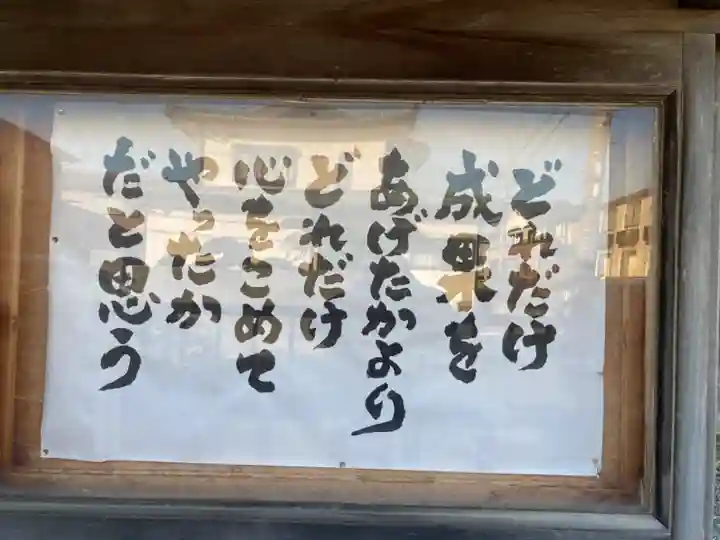 どれだけ
成果を
あげたかより
どれだけ
心をこめて
やったか
だと思う